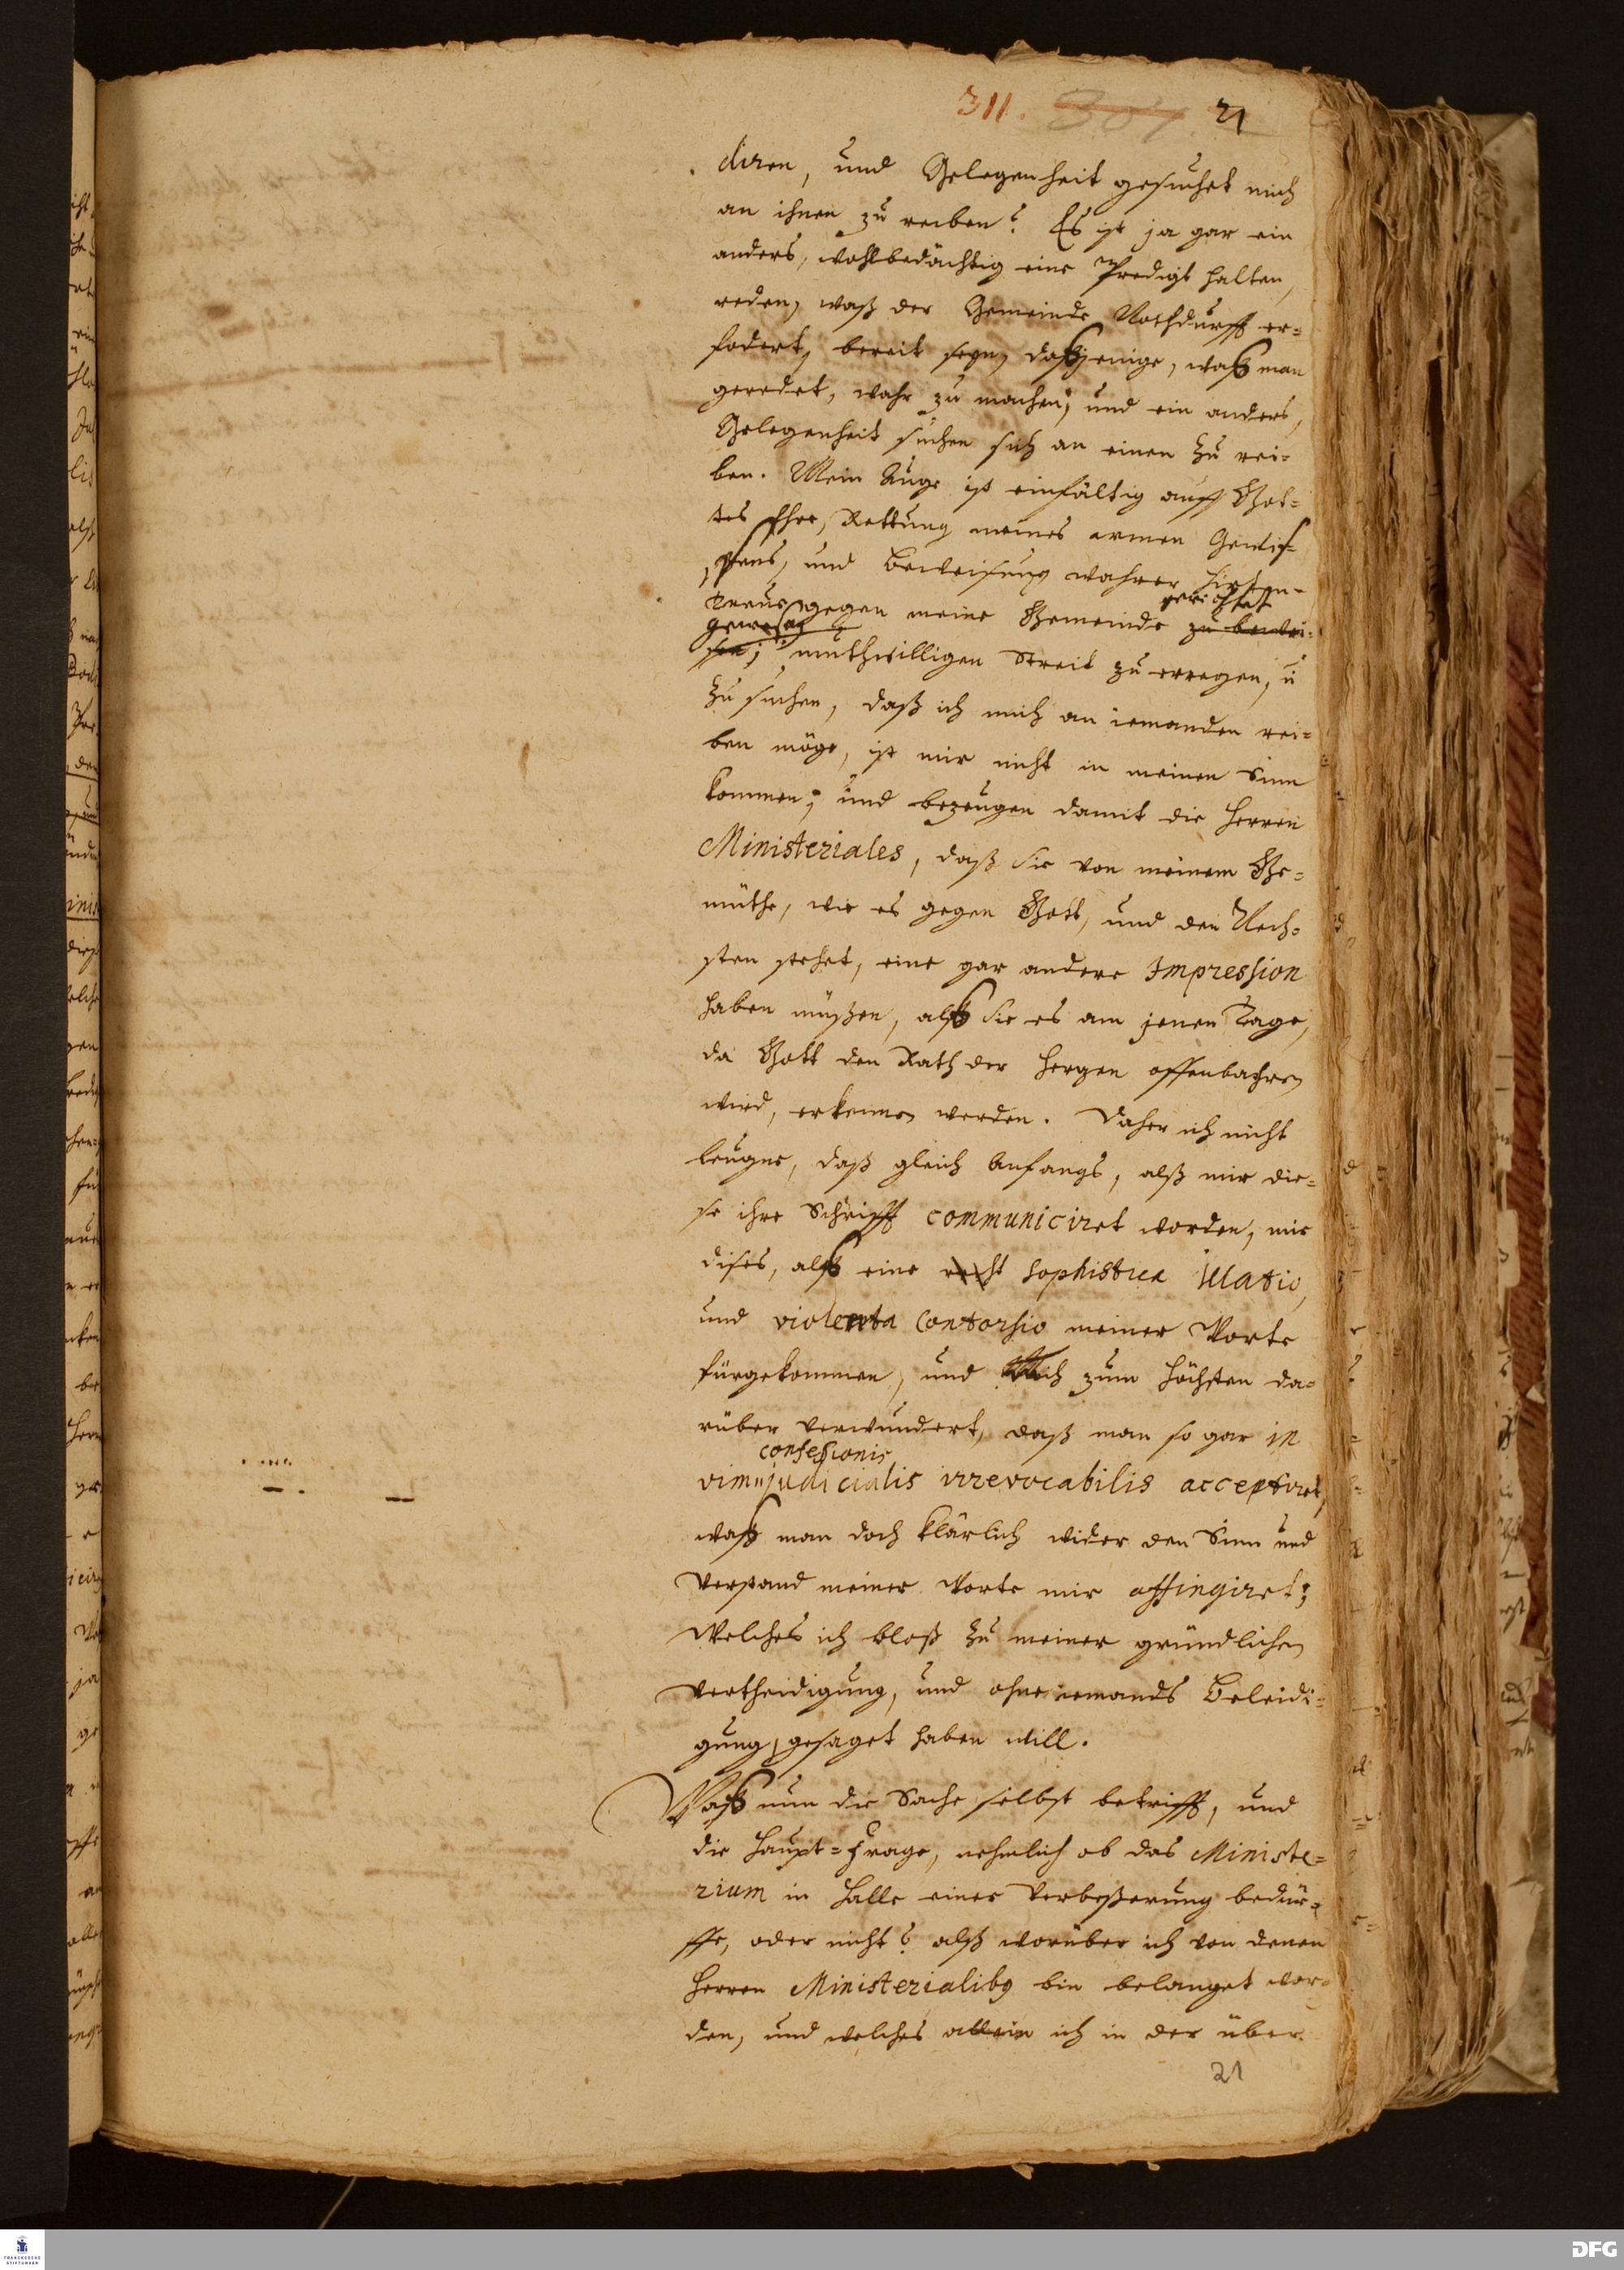 311. 307 21
diren, und Gelegenheit gesuchet mich
an ihnen zu reiben? Es ist ja gar ein
anders, wohlbedächtig eine Predigt halten,
reden, waß der Gemeinde Nothdurfft er=
fodert, bereit seyn, daßjenige, waß man
geredet, wahr zu machen; und ein anders,
Gelegenheit suchen sich an einen zu rei=
ben. Mein Auge ist einfältig auff Got=
tes Ehre, Rettung meines armen Gewis=
sens, und Beweisung wahrer Hirten=
gerichtet
treue gegen meine Gemeinde zu bewei=
gewesen
sen; muthwilligen Streit zu erregen, u
zu suchen, daß ich mich an iemanden rei=
ben möge, ist mir nicht in meinen Sinn
kommen; und bezeugen damit die Herren
Ministeriales, daß sie von meinem Ge=
müthe, wie es gegen Gott, und den Nech=
sten stehet, eine gar andere Impression
haben müßen, alß sie es am jenen Tage,
da Gott den Rath der Hertzen offenbahren
wird, erkennen werden. Daher ich nicht
leugne, daß gleich Anfangs, alß mir die=
se ihre Schrifft communiciret worden, mir
dises, alß eine recht sophistica illatio,
und violenta contorsio meiner Worte
fürgekommen, und mich zum höchsten da=
rüber verwundert, daß man so gar in
confessionis
vim judicialis irrevocabilis acceptiret,
waß man doch klärlich wider den Sinn und
Verstand meiner Worte mir affingiret;
Welches ich bloß zu meiner gründlichen
Vertheidigung, und ohne iemands Beleidi=
gung, gesaget haben will.
Waß nun die Sache selbst betrifft, und
die Haupt=Frage, nehmlich ob das Ministe=
rium in Halle einer Verbeßerung bedür=
ffe, oder nicht? alß worüber ich von denen
Herren Ministerialibus bin belanget wor=
den, und welches allein ich in der über
21
DFG
FRANCKESCHE
STIFTUNGEN